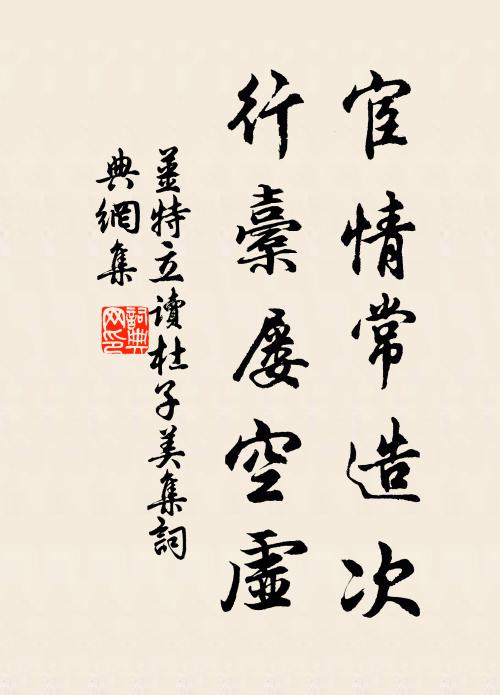 宦情常造次
行橐屡空虛
姜特立讀杜子美集詞
典網集
詞典网印